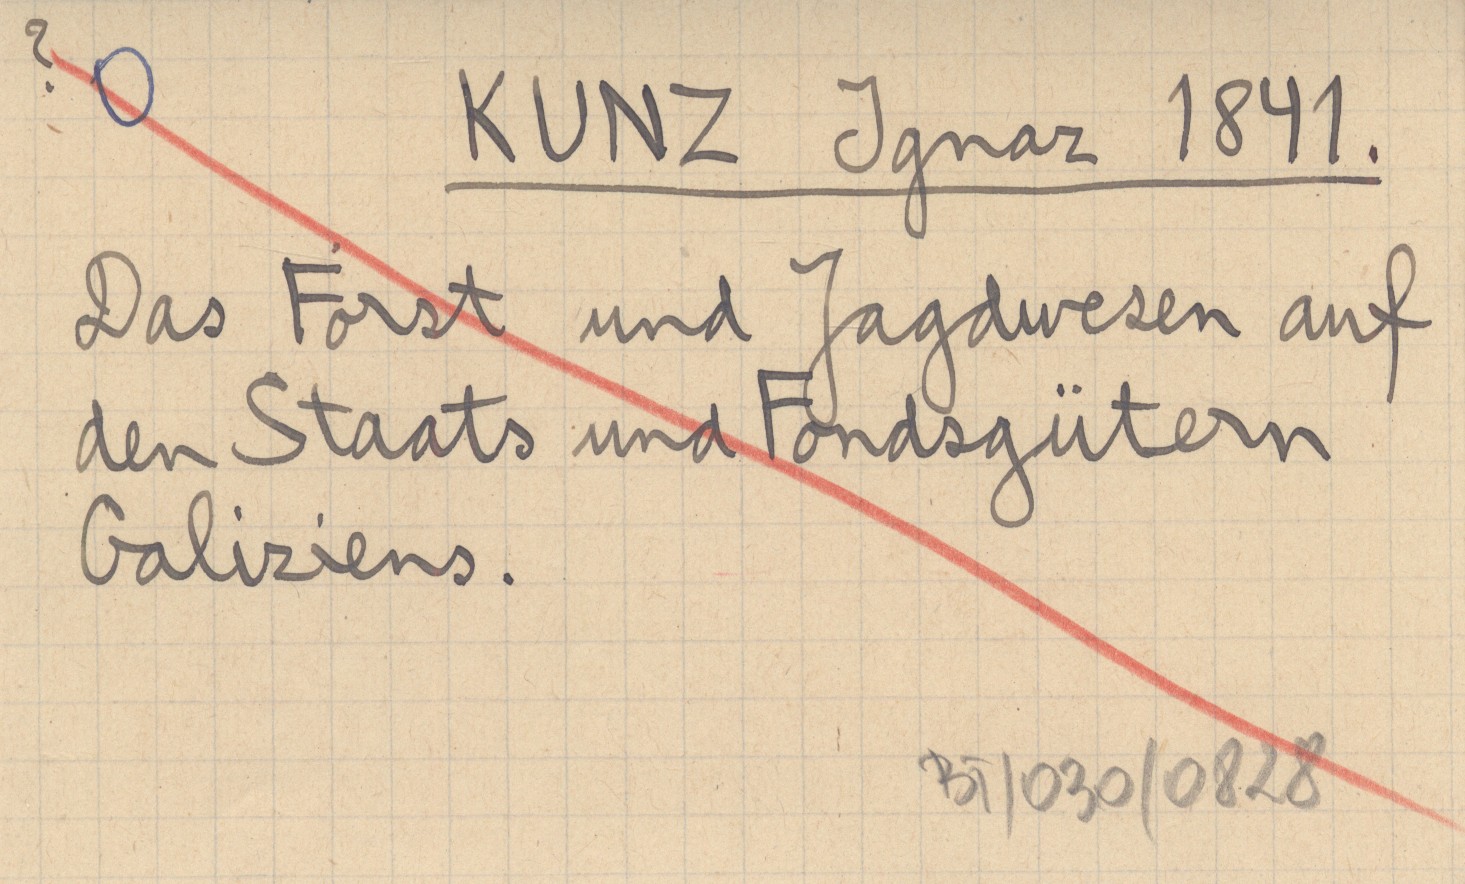 ?
KUNZ Ignaz 1841.
Das Forst und Jagdwesen auf
den Staats und Fondsgütern
Galiziens.
BT/030/0828